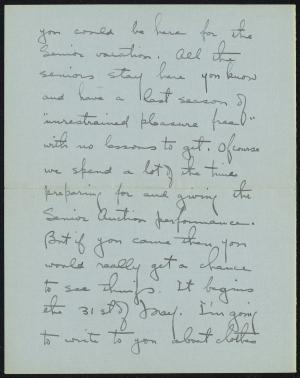 you could be here for the
Senior vacation. All the
seniors stay here you know
and have a last season of
"unrestrained pleasure free"
with no lessons to get. Of course
we spend a lot of the time
preparing for and giving the
Senior Auction performance.
But if you came then you
would really get a chance
to see things. It begins
the 31st of May. I'm going
to write to you about clothes